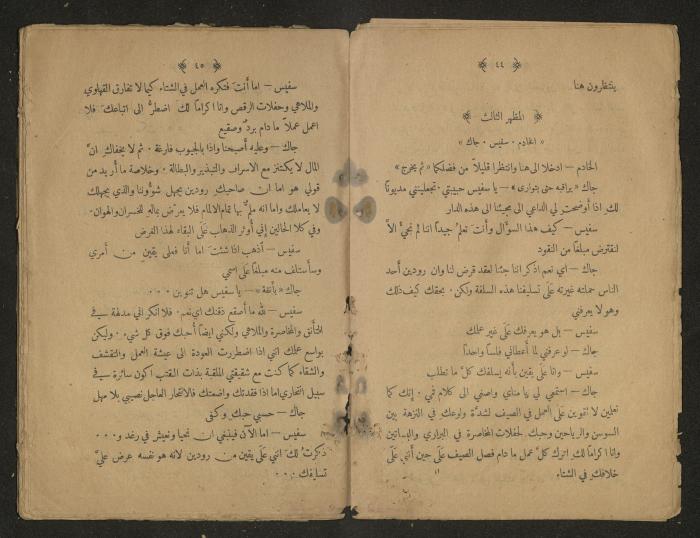 ٤٤
ينتظرون هنا
المظهر الثالث
« الخادم . سفيس . جاك »
الخادم — ادخلا الى هنا وانتظرا قليلاً من فضلكما « ثم يخرج »
جاك « يراقبه حتى يتوارى » — يا سفيس حبيبتي . تجعلينني مديونًا
لك اذا أوضحتِ لي الداعي الى مجيئنا الى هذه الدار
سفيس — كيف هذا السؤال وأنت تعلم جيداً اننا لم نجئ الاَّ
لنقترض مبلغًا من النقود
جاك — اي نعم اذكر اننا جئنا لعقد قرض لنا وان رودين أحد
الناس حملته غيرته على تسليفنا هذه السلفة ولكن . بحقك كيف ذلك
وهو لا يعرفني
سفيس — بل هو يعرفك على غير علمك
جاك — لو عرفني لما أعطاني فلسًا واحداً
سفيس — وانا على يقين بأنه يسلفك كلَّ ما تطلب
جاك — استمحي لي بيا مناي واصغي الى كلام فمي . إنك كما
تعلمين لا تقوين على العمل في الصيف لشدَّة ولوعك في النزهة بين
السوسن والرياحين وحبك لحفلات المخاصرة في البراري والبساتين
وانا اكرامًا لك اترك كلَّ عمل ما دام فصل الصيف على حين أنني على
خلافك في الشتاء
٤٥
سفيس — اما أنت فتكره العمل في الشتاء كيما لا تفارق القهاوي
والملاهي وحفلات الرقص وانا اكرامًا لك اضطرُّ الى اتباعك فلا
اعمل عملاً ما دام بردٌ وصقيع
جاك — وعليه أصبحنا واذا بالجيوب فارغة . ثم لا يخفاكِ انَّ
المال لا يكتنز مع الاسراف والتبذير والبطالة . وخلاصة ما أريد من
قولي هو اما ان صاحبك رودين يجهل شؤوننا والذي يجهلك
لا يعاملك واما انه ملمٌّ بها تمام الالمام فلا يعرّض بماله للخسران والهوان .
وفي كلا الحالين إني أوثر الذهاب على البقاء لهذا الغرض
سفيس — آذهب اذا شئت اما أنا فعلى يقين من أمري
وسأستلف منه مبلغًا على اسمي
جاك « بأنفة » — يا سفيس هل تنوين . . .
سفيس — لله ما أصقع ذقنك اي نعم . فلا انكر اني مدلهة في
التأنق والمخاصرة والملاهي ولكني ايضاً أحبك فوق كل شيء . وليكن
بواسع علمك انني اذا اضطررت العودة الى عيشة العمل والتقشف
والشقاء كما كنت مع شقيقتي الملقبة بذات القتب اكون سائرة في
سبيل انتحاري اما اذا فقدتك واضعتك فالانتحار العاجل نصيبي بلا مهل
جاك — حسبي حبك وكفى
سفيس — اما الآن فينبغي ان نحيا ونعيش في رغد و . . .
ذكرتُ لك انني على يقين من رودين لانه هو نفسه عرض عليَّ
تسليفك . . .